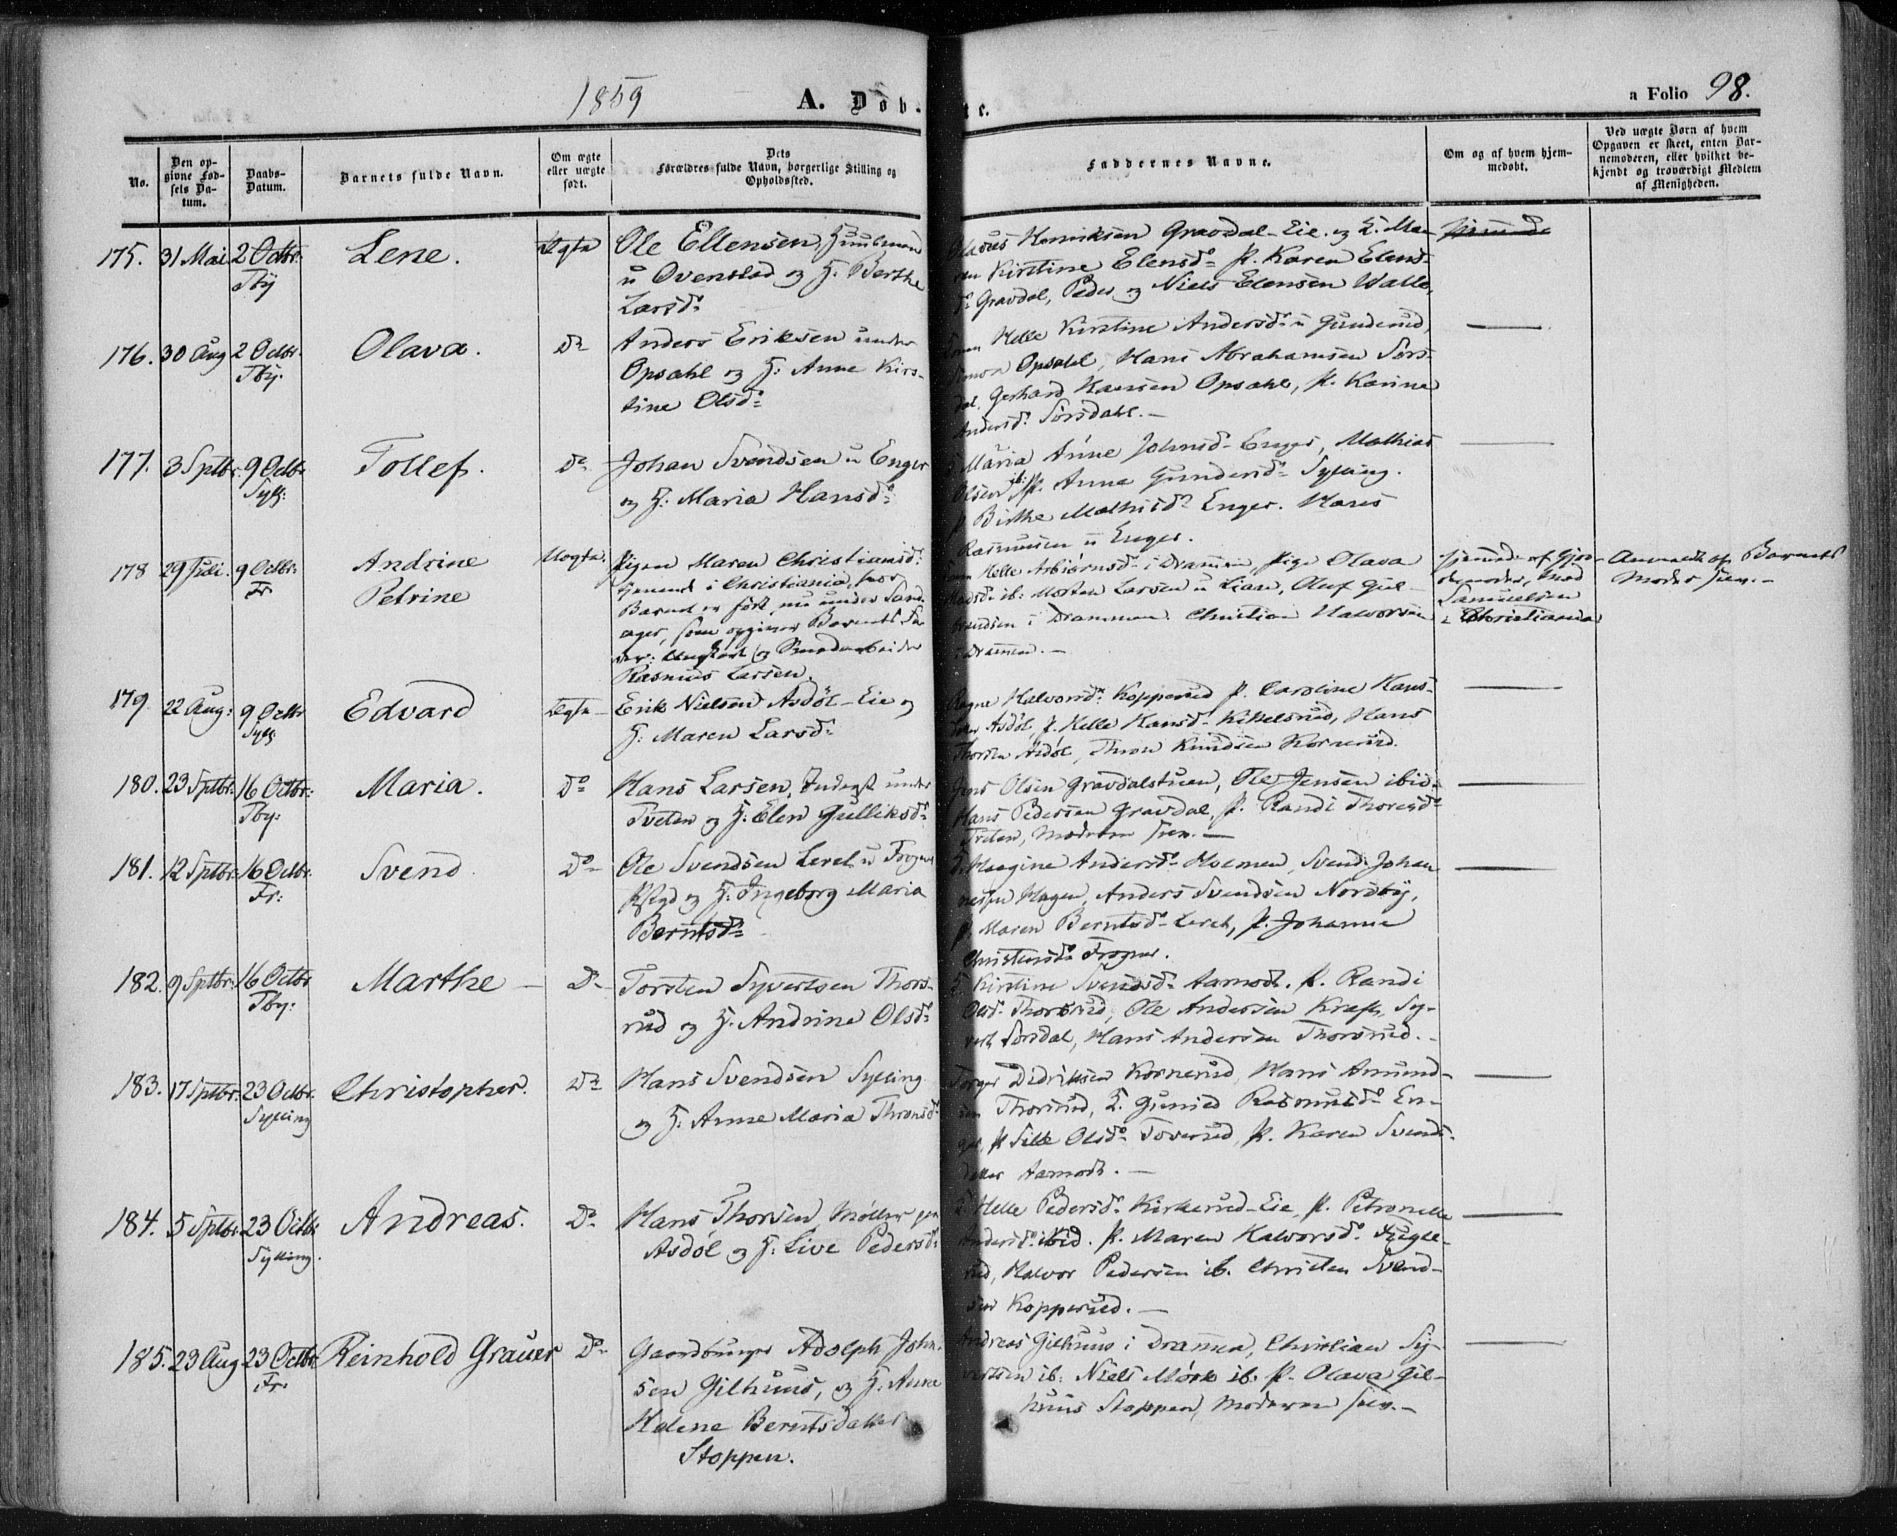 1859
A. Døb-
te.
a Folio 98.
No.
Den op-
givne Fød-
sels Da-
tum.
Daabs-
Datum.
Barnets fulde Navn.
Om ægte
eller uægte
født.
Dets
Forældres fulde Navn, borgerlige Stilling og
Opholdssted.
Faddernes Navne.
Om og af hvem hjem-
medøbt.
Ved uægte Børn af hvem
Opgaven er skeet, enten Bar-
nemoderen, eller hvilket be-
kjendt og troværdigt Medlem
af Menigheden.
175. 31 Mai 2 Octbr. Lene. Ægte
Tby
Ole Ellensen, Huusmand
u Ovenstad og H. Berthe
Larsd.
Henriksen Gravdal-Eie og
Kirstine Elensd. p. Karen Elens-
d. Gravdal, Peder og Niels Elensen Walle,
176. 30 Aug 2 Octbr. Olava. Do
Tby.
Anders Eriksen under
Opsahl og H. Anne Kirs-
tine Olsd.
Helle Kirstine Andersd. u Gunderud,
Opsahl, Hans Abrahamsen Sørs-
dal, Gerhard Hansen Opsahl, p. Karine
Andersd. Sørsdahl.
177. 3 Sptbr. 9 Octbr Tollef. Do
Syll:
Johan Svendsen u Enger
og H. Maria Hansd.
Maria Anne Johnsd. Enger, Mathias
Olsen p. Anna Gundersd. Sylling.
p. Birthe Mathisd. Enger. Hans
Rasmussen u Enger.
178 29 Juli. 9 Octbr. Andrine Uægte.
Fr. Petrine
Pigen Maren Christiansd.
tjenende i Christiania, hvor
Barnet er født, nu under Land-
ager, som opgiver Barnets Fa-
der: Ungkarl og
Rasmus Larsen.
Helle Asbiørnsd. i Drammen, Pige Olava
ib. Morten Larsen u Liaan, Oluf Gul-
brandsen i Drammen. Christian Halvorsen
i Drammen.
hjemmed. af Gjor-
demoder, Mad
Samuelsen
i Christiania
Anmeldt af Barnets
Moder selv.
179 22 Aug: 9 Octbr Edvard Ægte
Syll
Erik Nielsen Asdøl-Eie og
H. Maren Larsd.
Ragne Halvorsd. Kopperud p. Caroline Hans-
datter Asdøl, p. Helle Hansd. Kittelsrud, Hans
Thorsen Asdøl, Thron Knudsen Kornerud.
180. 23 Sptbr. 16 Octbr: Maria. Do
Tby:
Hans Larsen, Inderst under
Tveten og H. Elen Gulliksd.
Jens Olsen Gravdalstuen, Ole Jensen ibid.
Hans Pedersen Gravdal, p. Randi Thoresd.
Tveten, Moderen selv.
181. 12 Sptbr. 16 Octbr. Svend Do
Fr:
Ole Svendsen Leret u Frogner
Pstgd og H. Ingeborg Maria
Berntsd.
Andersd. Holmen, Svend Johan-
nesen Hagen, Anders Svendsen Nordby,
p. Maren Berntsd. Leret, p. Johanne
Christensd. Frogner.
182. 9 Sptbr: 16 Octbr Marthe Do
Tby:
Torsten Syvertsen Thors-
rud og H. Andrine Olsd.
Kirstine Svendsd. Aamodt. p. Randi
Olsd. Thorsrud, Ole Andersen Kraft, Sy-
vert Sørsdal, Hans Andersen Thorsrud.
183. 17 Sptbr. 23 Octbr. Christopher. Do
Sylling
Hans Svendsen Sylling
og H. Anne Maria Thronsd.
Torger Didriksen Kornerud, Hans Amund-
sen Thorsrud, Gunild Rasmusd. En-
ger, p. Sille Olsd. Toverud, p. Karen Svends-
datter Aamodt.
184. 5 Sptbr. 23 Octbr Andreas. Do
Sylling.
Hans Thorsen, Møller paa
Asdøl og H. Live Pedersd.
Helle Pedersd. Kirkerud-Eie, p. Petronelle
Andersd. ibid. p. Maren Halvorsd. Fugle-
rud, Halvor Pedersen ib. Christen Svend-
sen Kopperud.
185. 23 Aug 23 Octbr. Reinhold Grauer Do
Fr.
Gaardbruger Adolph John-
sen Gilhuus, og H. Anne
Helene Berntsdatter
Stoppen.
Andreas Gilhuus i Drammen, Christian Sy-
vertsen ib. Niels Mørk ib. p. Olava Gil-
huus Stoppen, Moderen selv.